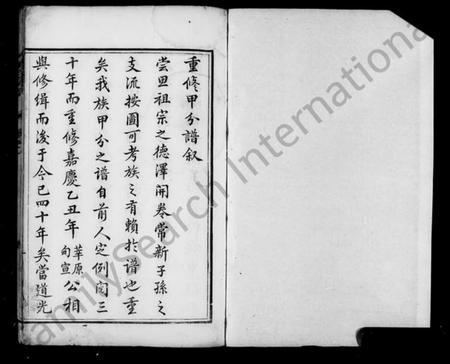 重修甲分譜叙
嘗思祖宗之德澤開卷常新子孫之
支流按圖可考族之有賴於譜也重
矣我族甲分之譜自前人定例閱三
十年而重修嘉慶乙丑年 華原 旬宣 公相
與修緝而後于今已四十年矣當道光
FamilySearch International